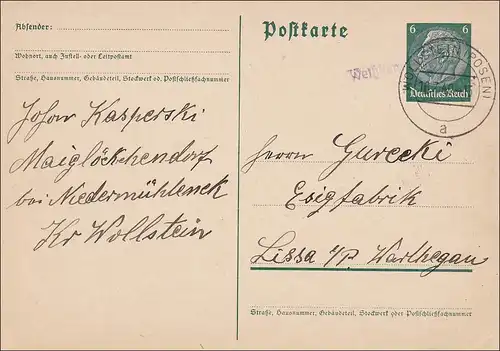 Absender:
Wohnort, auch Zustell- oder Leitpostamt
Straße, Hausnummer, Gebäudeteil, Stockwerk od. Postschließfachnummer
Johow Kasperski
Maiglöckchendorf
bei Niedermühleneck
Kr Wollstein
Postkarte
6 6
Deutsches Reich
WOLLSTEIN (POSEN)
a
Herrn Gurecki
Esigfabrik
Lissa i/p Warthegau
Straße, Hausnummer, Gebäudeteil, Stockwerk oder Postschließfachnummer